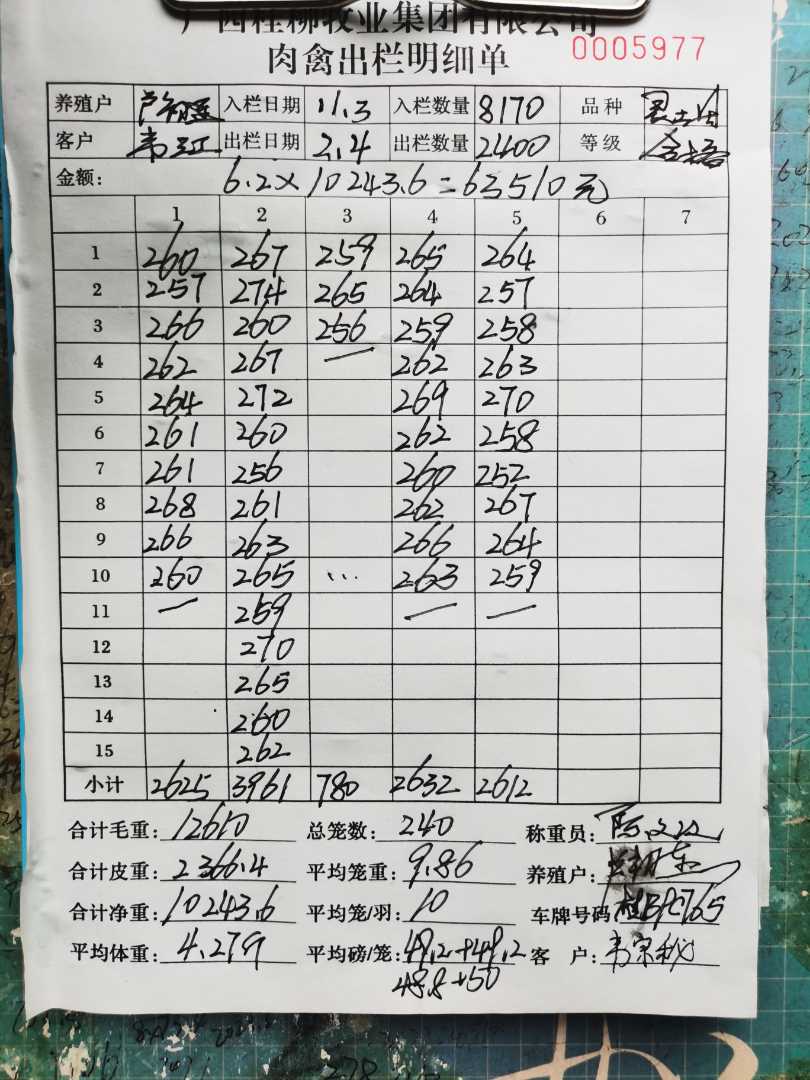 广西桂柳牧业集团有限公司
肉禽出栏明细单 0005977
养殖户 入栏日期 11.3 入栏数量 8170 品种
客户 韦江 出栏日期 2.4 出栏数量 2400 等级
金额: 6.2×10243.6=63510元
1 2 3 4 5 6 7
1 260 267 259 265 264
2 257 274 265 264 257
3 266 260 256 259 258
4 262 267 — 262 263
5 264 272 269 270
6 261 260 262 258
7 261 256 260 252
8 268 261 262 267
9 266 263 266 264
10 260 265 ... 263 259
11 — 259 — —
12 270
13 265
14 260
15 262
小计 2625 3961 780 2632 2612
合计毛重: 12610 总笼数: 240 称重员:
合计皮重: 2366.4 平均笼重: 9.86 养殖户:
合计净重: 10243.6 平均笼/羽: 10 车牌号码:
平均体重: 4.279 平均磅/笼: 49.2+49.2 客 户:
48.8+50